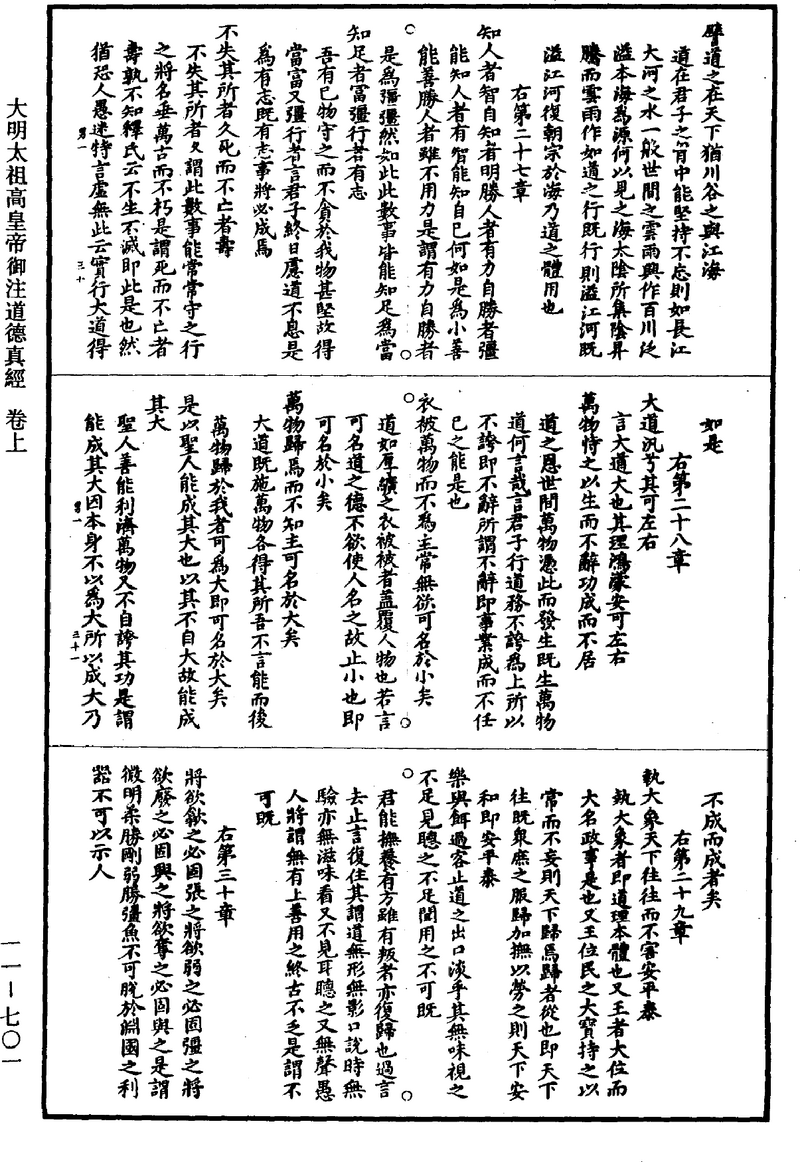 大明太祖高皇帝御注道德真經　卷上
譬道之在天下猶川谷之與江海
道在君子之胷中能堅持不忘則如長江
大河之水一般世間之雲雨興作百川泛
溢本海為源何以見之海太陰所集陰昇
騰而雲雨作如道之行既行則溢江河既
溢江河復朝宗於海乃道之體用也
右第二十七章
知人者智自知者明勝人者有力自勝者彊
能知人者有智能知自己何如是為小善
能善勝人者雖不用力是謂有力自勝者
是為彊彊然如此此數事皆能知足為當
知足者富彊行者有志
吾有已物守之而不貪於我物甚堅故得
當富又彊行者言君子終日慮道不息是
為有志既有志事將必成焉
不失其所者久死而不亡者壽
不失其所者久謂此數事能常常守之行
之將名垂萬古而不朽是謂死而不亡者
壽孰不知釋氏云不生不滅即此是也然
猶恐人愚迷特言虛無此云實行大道得
男一
三十
如是
右第二十八章
大道汎兮其可左右
言大道大也其理鴻濛安可左右
萬物恃之以生而不辭功成而不居
道之恩世間萬物憑此而發生既生萬物
道何言哉言君子行道務不誇為上所以
不誇即不辭所謂不辭即事業成而不任
已之能是也
衣被萬物而不為主常無欲可名於小矣
道如厚纊之衣被被者蓋覆人物也若言
可名道之德不欲使人名之故止小也即
可名於小矣
萬物歸焉而不知主可名於大矣
大道既施萬物各得其所吾不言能而後
萬物歸於我者可為大即可名於大矣
是以聖人能成其大也以其不自大故能成
其大
聖人善能利濟萬物又不自誇其功是謂
能成其大因本身不以為大所以成大乃
男一
三十一
不成而成者矣
右第二十九章
執大象天下往往而不害安平泰
執大象者即道理本體也又王者大位而
大名政事是也又王位民之大寶持之以
常而不妄則天下歸焉歸者從也即天下
往既眾庶之服歸加撫以勞之則天下安
和即安平泰
樂與餌過客止道之出口淡乎其無味視之
不足見聽之不足聞用之不可既
君能撫養有方雖有叛者亦復歸也過言
去止言復住其謂道無形無影口說時無
驗亦無滋味看又不見耳聽之又無聲愚
人將謂無有上善用之終古不乏是謂不
可既
右第三十章
將欲歙之必固張之將欲弱之必固彊之將
欲廢之必固興之將欲奪之必固與之是謂
微明柔勝剛弱勝彊魚不可脫於淵國之利
器不可以示人
一一—七〇一